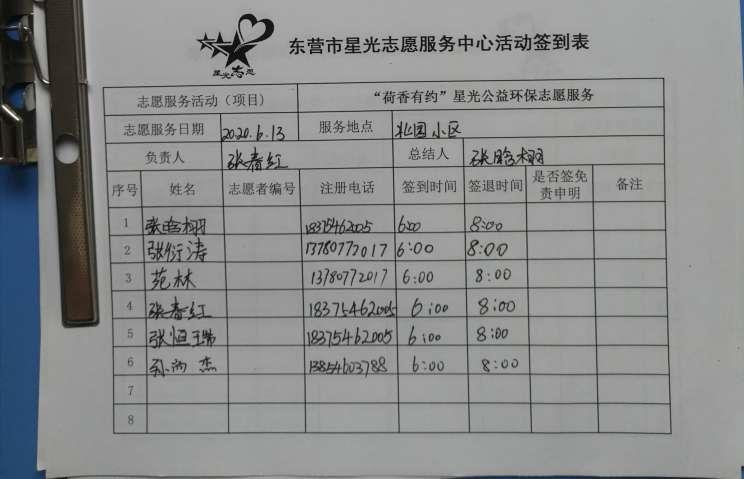 星光志愿
东营市星光志愿服务中心活动签到表
志愿服务活动（项目） “荷香有约”星光公益环保志愿服务
志愿服务日期 2020.6.13 服务地点 北园小区
负责人 张春红 总结人 张晗栩
序号 姓名 志愿者编号 注册电话 签到时间 签退时间 是否签免责申明 备注
1 张晗栩 18375462005 6:00 8:00
2 张衍涛 13780772017 6:00 8:00
3 范林 13780772017 6:00 8:00
4 张春红 18375462005 6:00 8:00
5 张恒瑞 18375462005 6:00 8:00
6 孙 杰 13854603788 6:00 8:00
7
8